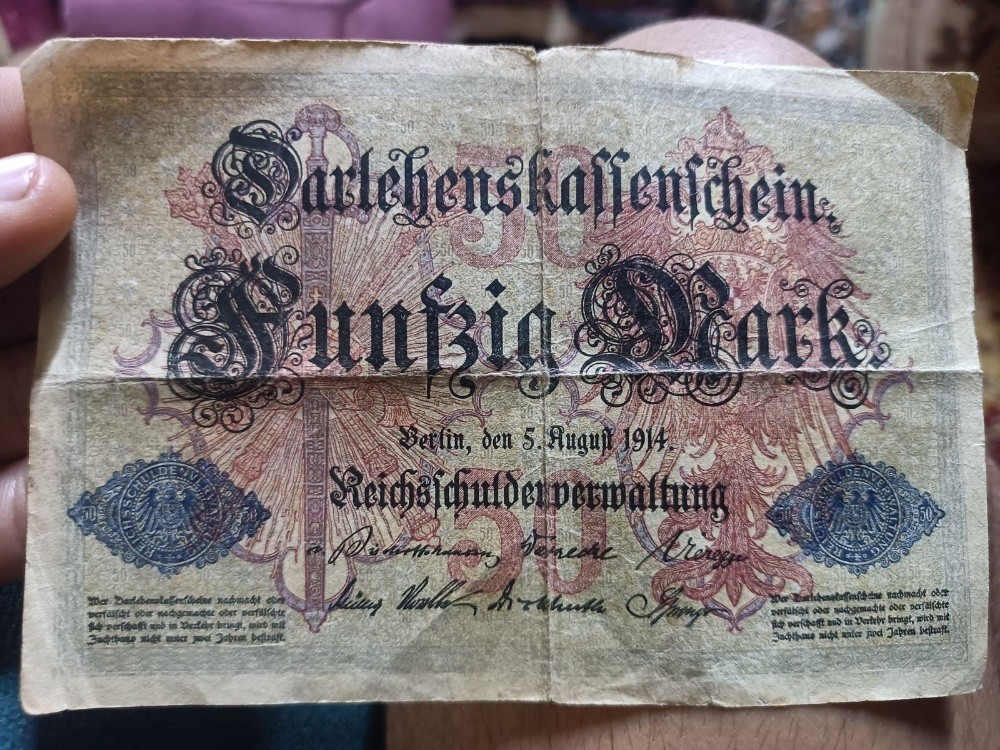 Darlehenskassenschein.
50
Fünfzig Mark.
Berlin, den 5. August 1914.
Reichsschuldenverwaltung
50
REICHSSCHULDENVERWALTUNG
50 50
REICHSSCHULDENVERWALTUNG
50 50
Wer Darlehenskassenscheine nachmacht oder
verfälscht oder nachgemachte oder verfälschte
sich verschafft und in Verkehr bringt, wird mit
Zuchthaus nicht unter zwei Jahren bestraft.
Wer Darlehenskassenscheine nachmacht oder
verfälscht oder nachgemachte oder verfälschte
sich verschafft und in Verkehr bringt, wird mit
Zuchthaus nicht unter zwei Jahren bestraft.